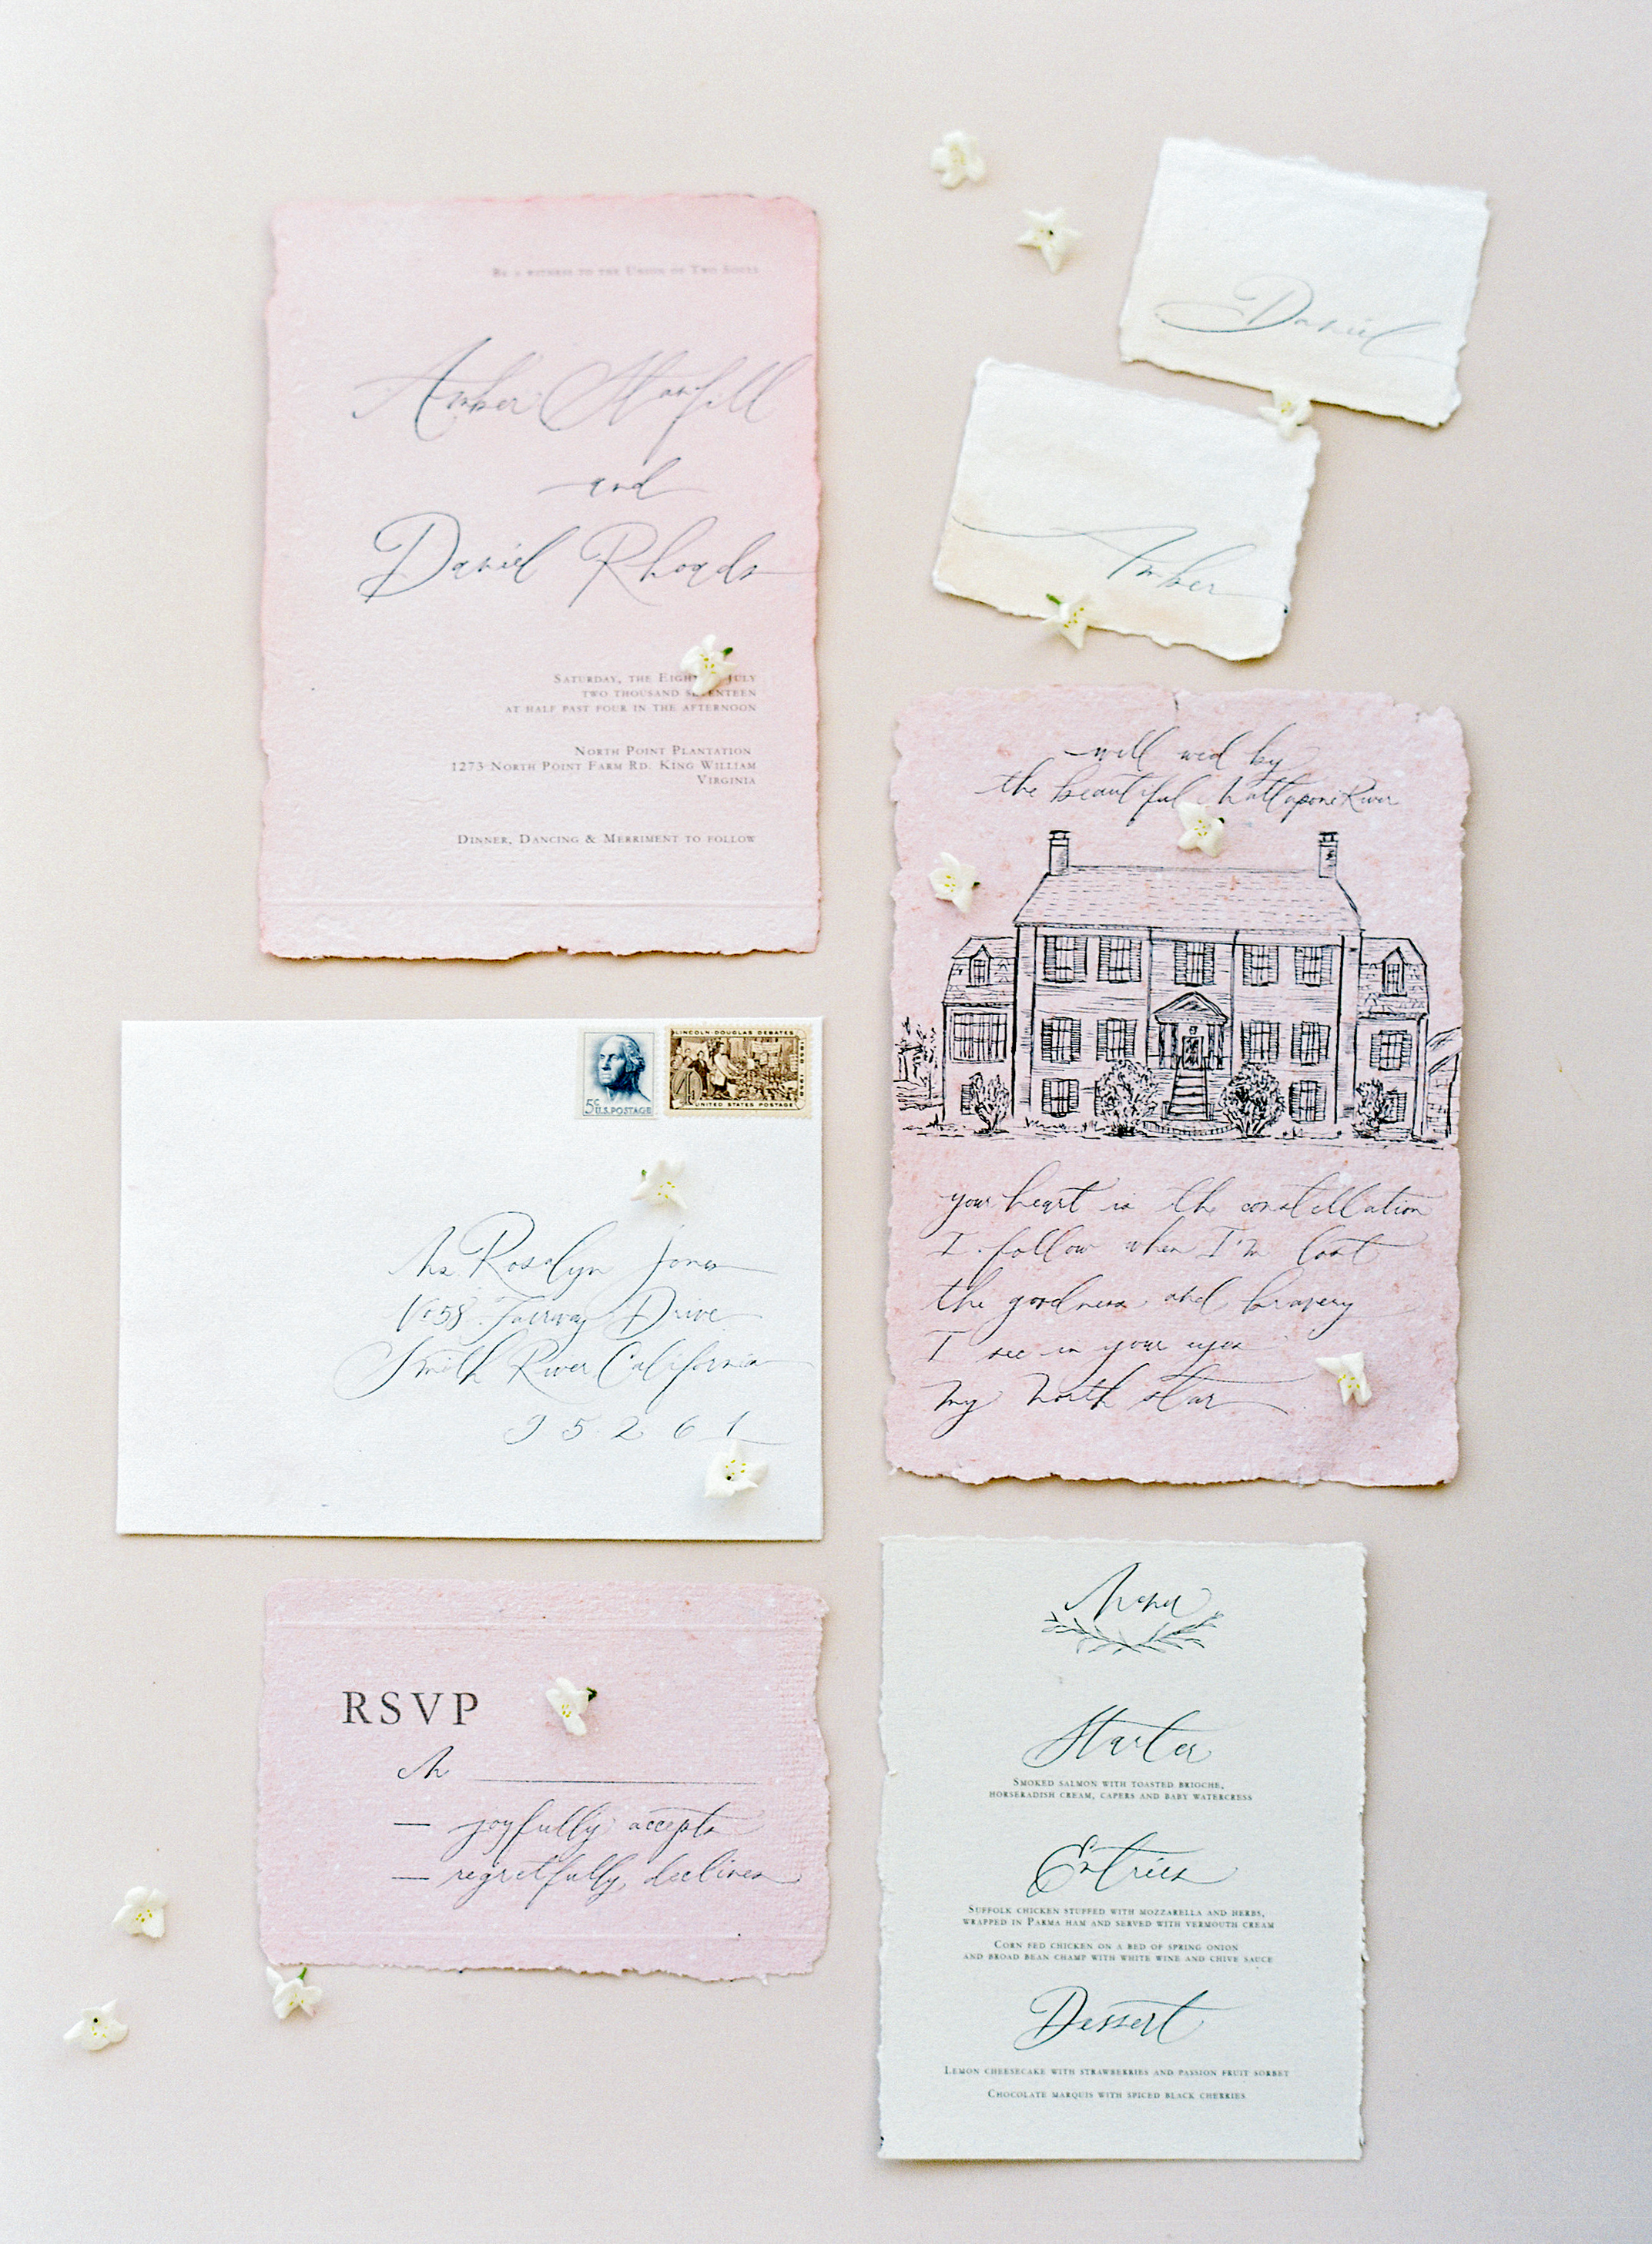 Be a witness to the Union of Two Souls
Amber Stanfill
and
Daniel Rhoads
Saturday, the July
two thousand seventeen
at half past four in the afternoon
North Point Plantation
1273 North Point Farm Rd. King William
Virginia
Dinner, Dancing & Merriment to follow
Daniel
Amber
will wed by
the beautiful Mattaponi River
your heart is the constellation
I follow when I'm lost
the goodness and bravery
I see in your eyes
my north star
5c
U.S. POSTAGE
LINCOLN-DOUGLAS DEBATES
4c
UNITED STATES POSTAGE
Ms. Rosalyn Jones
Fairway Drive
Smith River California
95261
RSVP
M
joyfully accepts
regretfully declines
Menu
Starter
Smoked salmon with toasted brioche,
horseradish cream, capers and baby watercress
Entrées
Suffolk chicken stuffed with mozzarella and herbs,
wrapped in Parma ham and served with vermouth cream
Corn fed chicken on a bed of spring onion
and broad bean champ with white wine and chive sauce
Dessert
Lemon cheesecake with strawberries and passion fruit sorbet
Chocolate marquis with spiced black cherries